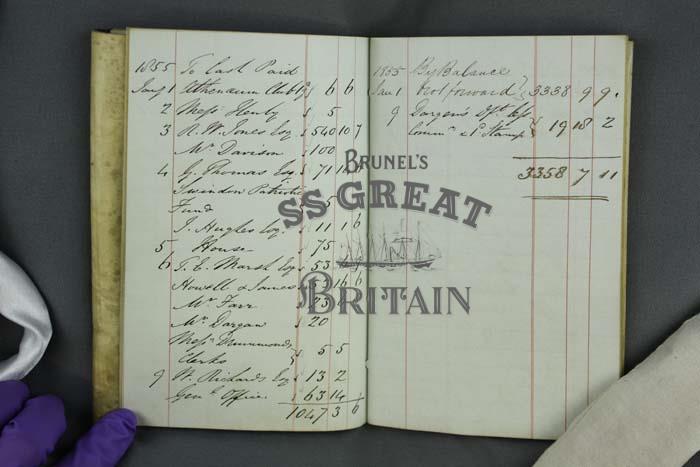 1855 To Cash Paid
Jany 1 Athenaeum Club 6 6
2 Messrs Henty 5
3 R. W. Jones Esq 540 10 7
Mr Davison 100
4 G. Thomas Esq 71
Swindon Patriotic
Fund 5
J. Hughes Esq 11 1 6
5 House 75
6 T. E. Marsh Esq 53
Howell & James
Mr Farr
Mr Dargan 20
Messrs Drummonds
Clerks 5 5
9 W. Richards Esq 13 2
Genl Office 63 14
1047 3 6
1855 By Balance
Jan 1 brot forward 3338 9 9
9 Dft
Commn & Stamp 19 18 2
3358 7 11
BRUNEL'S
SS GREAT
BRITAIN